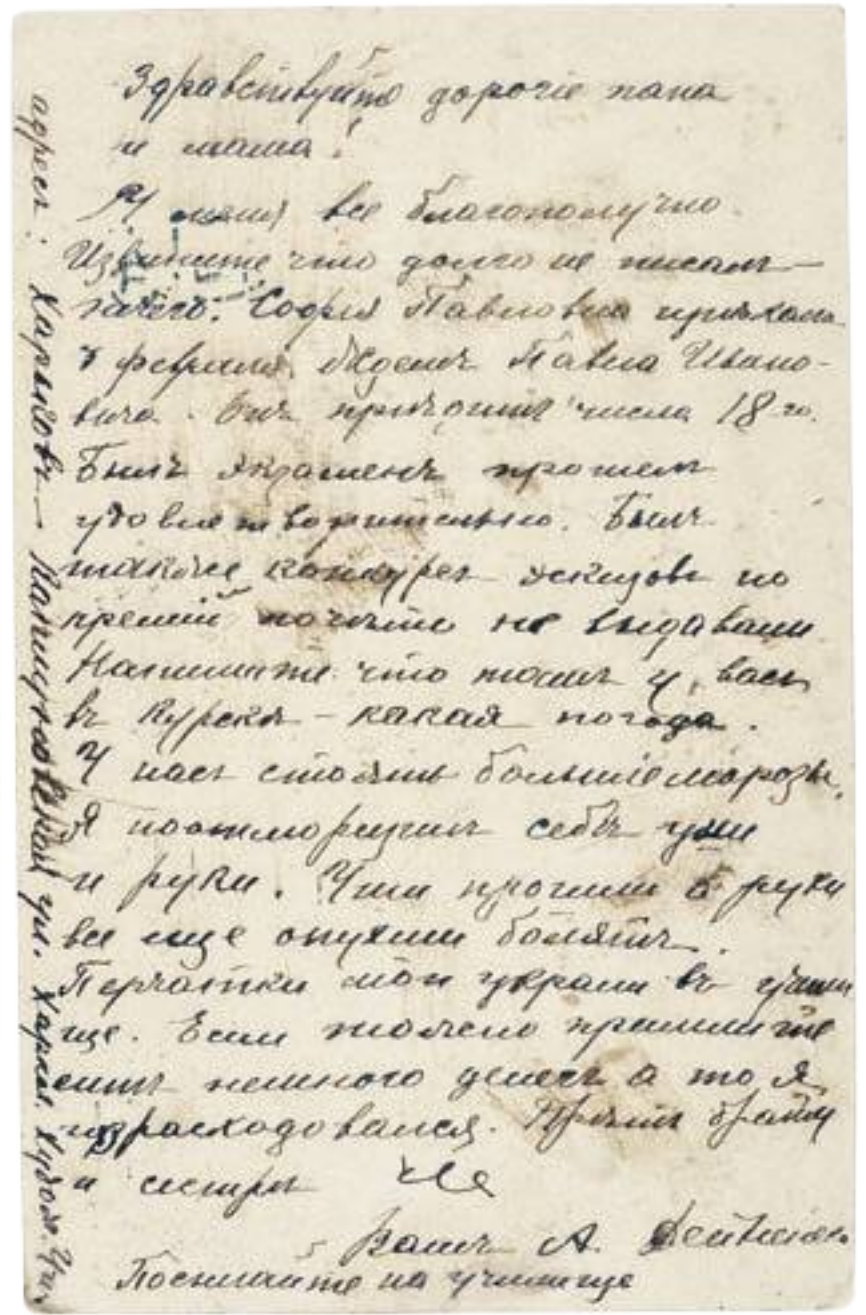 Здравствуйте дорогіе папа
и мама!
У меня все благополучно.
Извините что долго не писалъ
ничего. Софья Павловна пріѣхала
февраля. Ждемъ Павла Ивано-
вича. Онъ пріѣдитъ числа 18 го.
Былъ экзаменъ прошелъ
удовлетворительно. Былъ
также конкурсъ эскизовъ но
премій почти не выдавали
Напишите что тамъ у васъ
въ Курскѣ – какая погода.
У насъ стоятъ большіе морозы.
Я поотморозилъ себѣ уши
и руки. Уши прошли а руки
все еще опухши болятъ.
Перчатки мои украли въ учили
ще. Если можно пришлите
немного денегъ а то я
израсходовался. Привѣтъ брату
и сестрѣ
Вашъ А. Дейнека
Посылайте на училище
адресъ: Харьковъ – Каплуновская ул. Харьк. Худож. Учил.